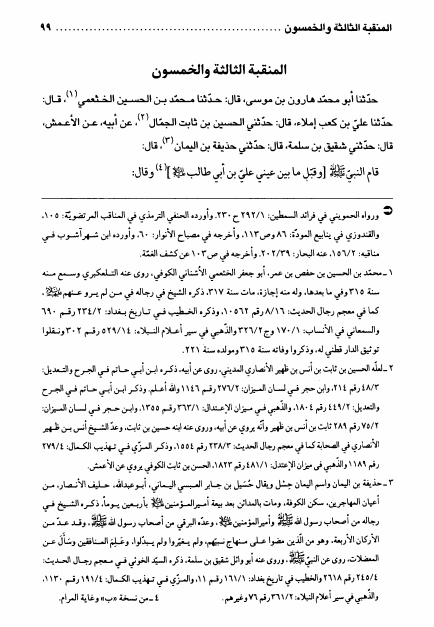 المنقبة الثالثة والخمسون ........................................................ ٩٩
المنقبة الثالثة والخمسون
حدّثنا أبو محمّد هارون بن موسى، قال: حدّثنا محمّد بن الحسين الخثعمي(١)، قال:
حدّثنا عليّ بن كعب إملاء، قال: حدّثني الحسين بن ثابت الجمّال(٢)، عن أبيه، عن الأعمش،
قال: حدّثني شقيق بن سلمة، قال: حدّثني حذيفة بن اليمان(٣)، قال:
قام النبيّ ﷺ [وقبّل ما بين عيني عليّ بن أبي طالب ](٤) وقال:
ورواه الحمويني في فرائد السمطين: ٢٩٢/١ ح٢٣٠. وأورده الحنفي الترمذي في المناقب المرتضويّة: ١٠٥،
والقندوزي في ينابيع المودّة: ٨٦ وص١١٣. وأخرجه في مصباح الأنوار: ٦٠. وأورده ابن شهرآشوب في
مناقبه: ١٥٦/٢، عنه البحار: ٢٠٢/٣٩. وأخرجه في ص١٠٣ عن كشف الغمّة.
١ ـ محمّد بن الحسين بن حفص بن عمر، أبو جعفر الخثعمي الأشناني الكوفي، روى عنه التلعكبري وسمع منه
سنة ٣١٥ وفي ما بعدها، وله منه إجازة، مات سنة ٣١٧، ذكره الشيخ في رجاله في من لم يرو عنهم ،
كما في معجم رجال الحديث: ٨/١٦ رقم ١٠٥٦٢. وذكره الخطيب في تاريخ بغداد: ٢٣٤/٢ رقم ٦٩٠
والسمعاني في الأنساب: ١٧٠/١ وج٣٢٦/٢ والذّهبي في سير أعلام النبلاء: ٥٢٩/١٤ رقم ٣٠٢ ونقلوا
توثيق الدار قطني له، وذكروا وفاته سنة ٣١٥ ومولده سنة ٢٢١.
٢ ـ لعلّه الحسين بن ثابت بن أنس بن ظهير الأنصاري المديني، روى عن أبيه، ذكره ابن أبي حاتم في الجرح والتعديل:
٤٨/٣ رقم ٢١٤، وابن حجر في لسان الميزان: ٢٧٦/٢ رقم ١١٤٦ والله أعلم. وذكر ابن أبي حاتم في الجرح
والتعديل: ٤٤٩/٢ رقم ١٨٠٤، والذّهبي في ميزان الاعتدال: ٣٦٣/١ رقم ١٣٥٥، وابن حجر في لسان الميزان:
٧٥/٢ رقم ٢٨٩ ثابت بن أنس بن ظهير وأنّه يروي عن أبيه، وروى عنه ابنه حسين بن ثابت، وعدّ الشيخ أنس بن ظهير
الأنصاري في الصحابة كما في معجم رجال الحديث: ٢٣٨/٣ رقم ١٥٥٤، وذكر المزّي في تهذيب الكمال: ٢٧٩/٤
رقم ١١٨٩ والذّهبي في ميزان الإعتدل: ٤٨١/١ رقم ١٨٢٣، الحسن بن ثابت الكوفي يروي عن الأعمش.
٣ ـ حذيفة بن اليمان واسم اليمان حِسْل ويقال حُسَيل بن جابر العبسي اليماني، أبو عبدالله، حليف الأنصار، من
أعيان المهاجرين، سكن الكوفة، ومات بالمدائن بعد بيعة أميرالمؤمنين بأربعين يوماً، ذكره الشيخ في
رجاله من أصحاب رسول الله ﷺ وأميرالمؤمنين ، وعدّه البرقي من أصحاب رسول الله ﷺ، وقد عدّ من
الأركان الأربعة، وهو من الّذين مضوا على منهاج نبيّهم، ولم يغيّروا ولم يبدّلوا، وعَلِمَ المنافقين وسأل عن
المعضلات، روى عن النبيّ ﷺ، وروى عنه أبو وائل شقيق بن سلمة، ذكره السيّد الخوئي في معجم رجال الحديث:
٢٤٥/٤ رقم ٢٦١٨ والخطيب في تاريخ بغداد: ١٦١/١ رقم ١١، والمزّي في تهذيب الكمال: ١٩١/٤ رقم ١١٣٠،
والذّهبي في سير أعلام النبلاء: ٣٦١/٢ رقم ٧٦ وغيرهم. ٤ ـ من نسخة «ب» وغاية المرام.